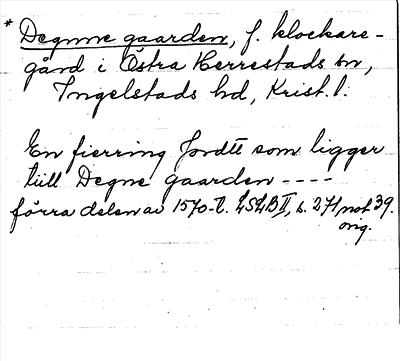 * Degnne gaarden, f. klockare-
gård i Östra Herrestads sn,
Ingelstads hd, Krist. l.
En fierring Jordtt som ligger
till Degne gaarden ----
förra delen av 1570-t. LSLB II, s. 271 not 39.
orig.